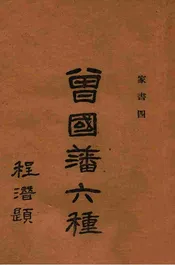 家書四
曾國藩六種
程潛題